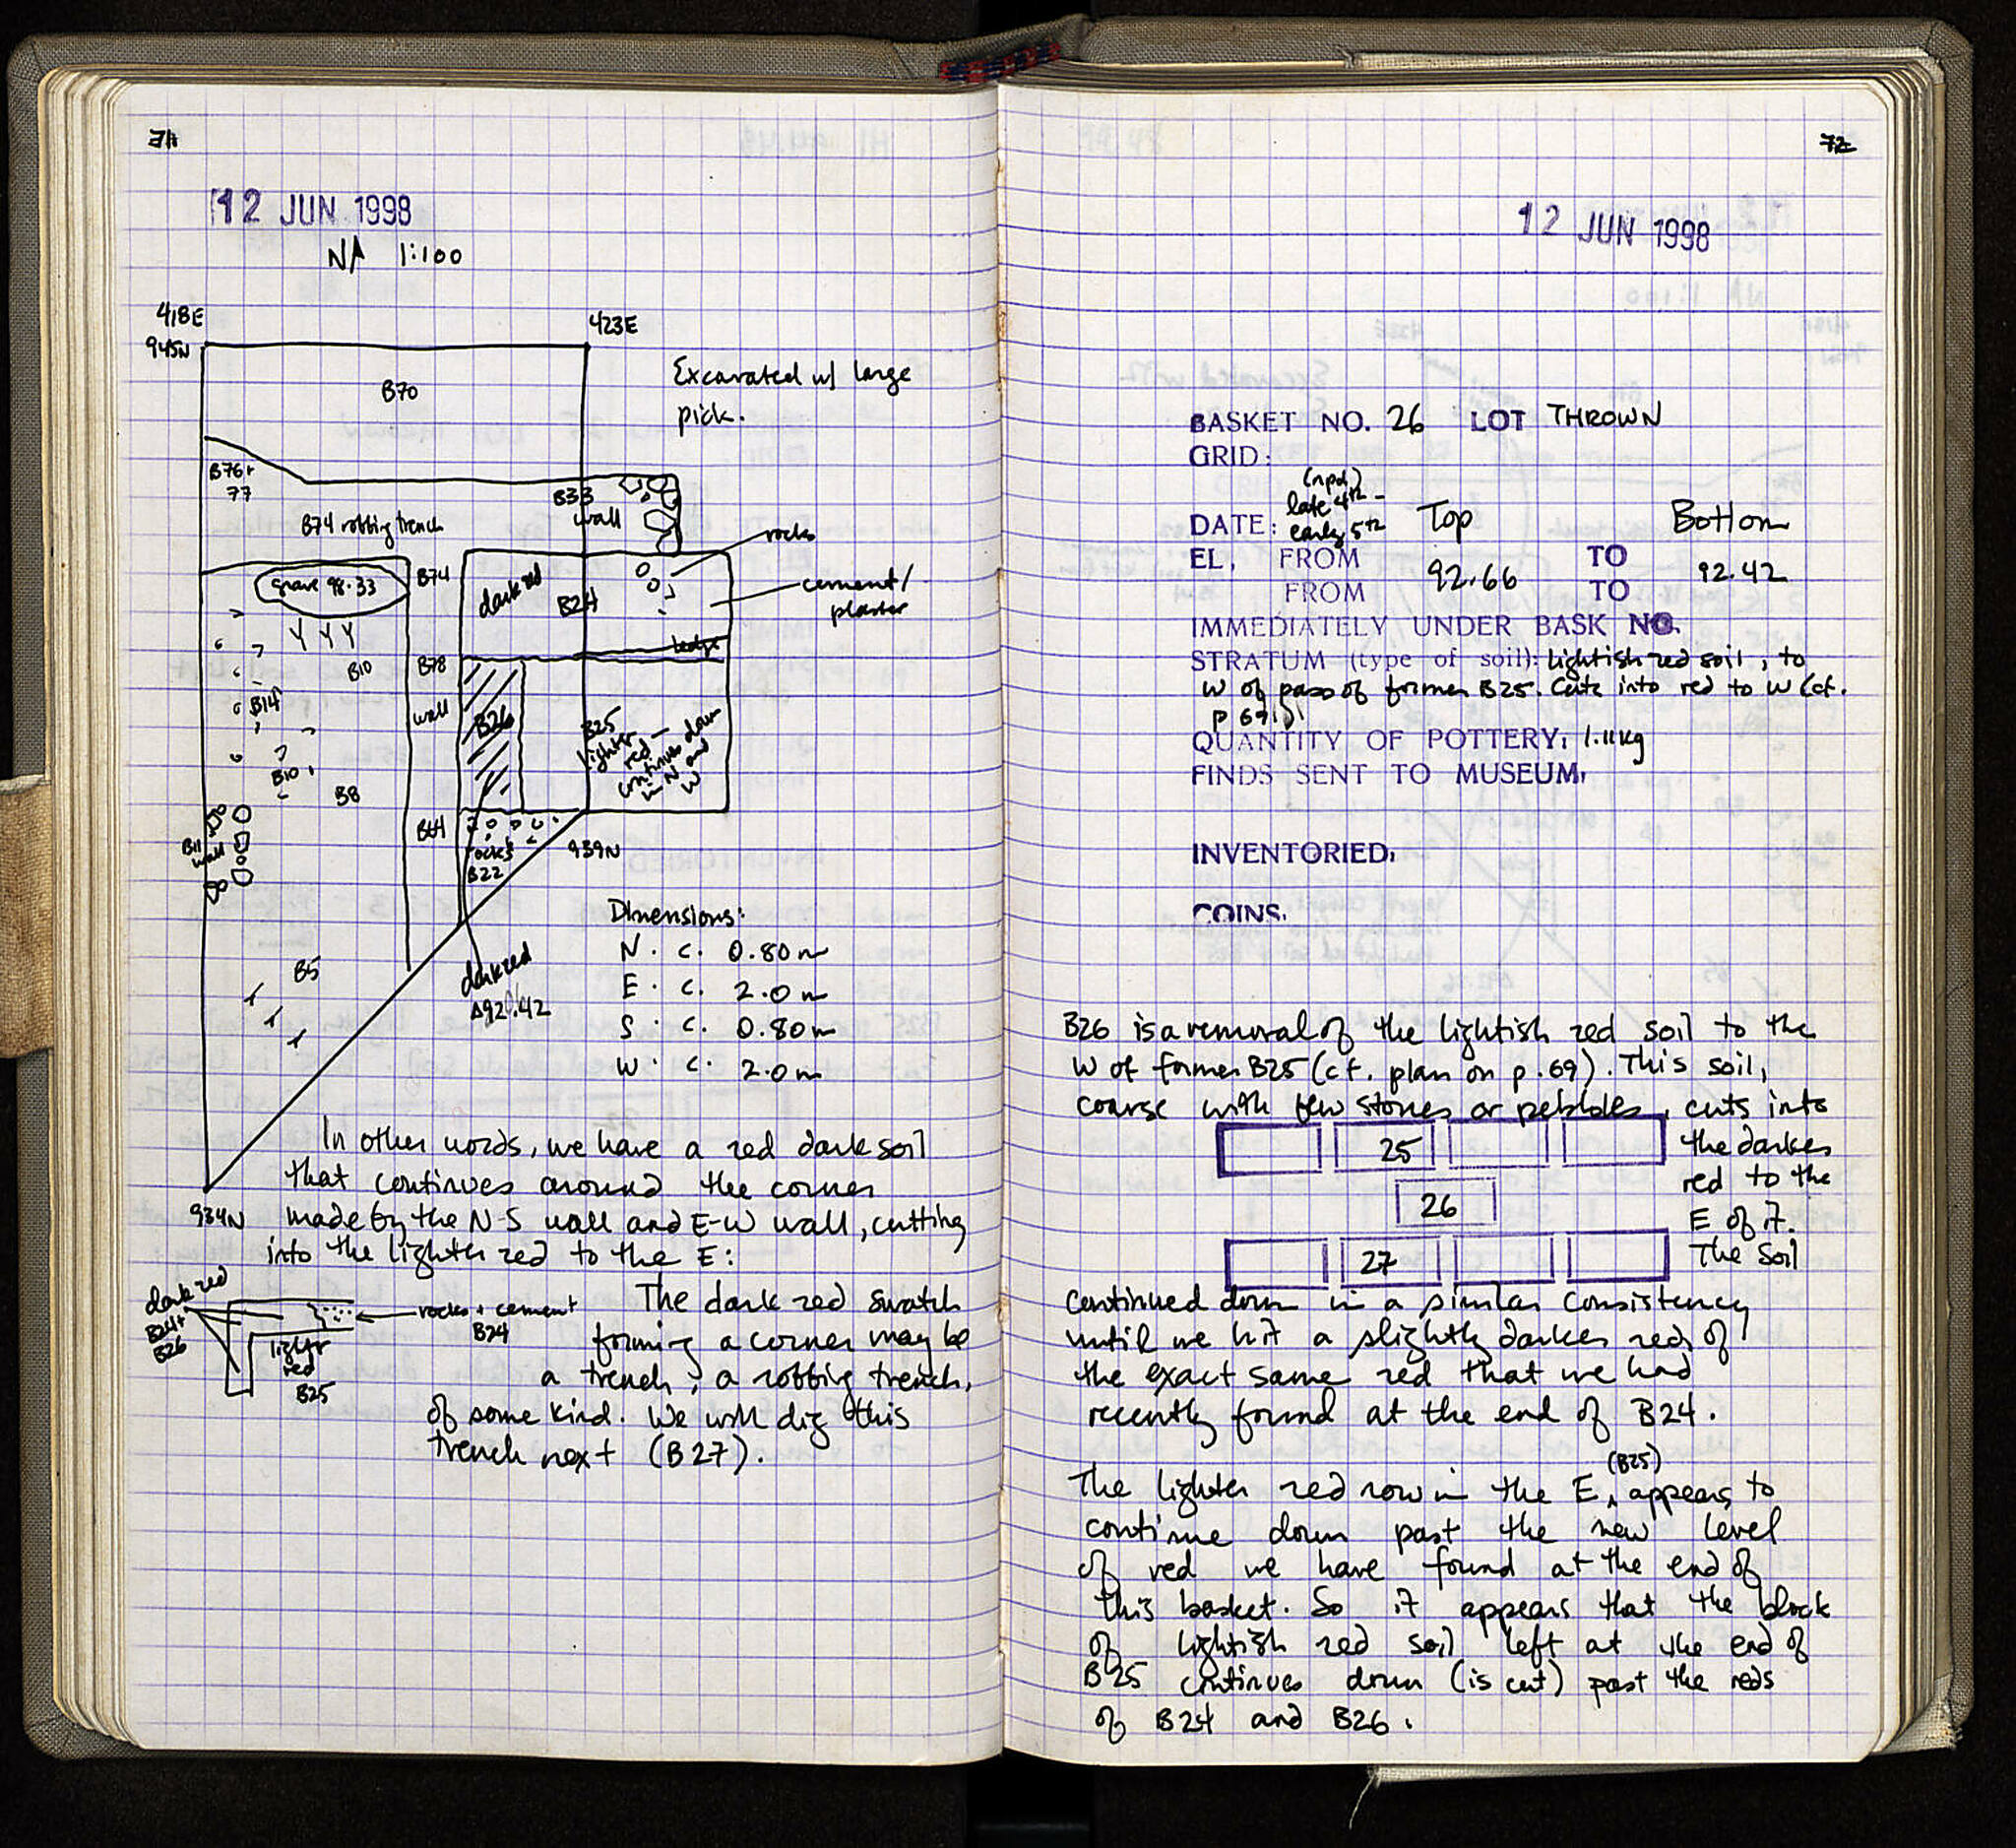 71
12 JUN 1998
N 1:100
418E
945N
423E
B70
Excavated w/ large
pick.
B76+
77
B33
wall
B74 robbing trench
rocks
grave 98-33
B74
dark red
B24
cement/
plaster
ledge
B10
B78
B14
wall
B26
B25
lighter
red —
continues down
in N and
W
B10
B8
B11
wall
B64
rocks
B22
939N
Dimensions:
N · c. 0.80 m
E · c. 2.0 m
S · c. 0.80 m
W c. 2.0 m
B5
dark red
Δ92.42
In other words, we have a red dark soil
that continues around the corner
934N
made by the N-S wall and E-W wall, cutting
into the lighter red to the E:
dark red
B24+
B26
rocks + cement
B24
lighter
red
B25
The dark red swatch
forming a corner may be
a trench, a robbing trench,
of some kind. We will dig this
trench next (B27).
72
12 JUN 1998
BASKET NO. 26 LOT THROWN
GRID:
(npd)
late 4th -
DATE: early 5th Top Bottom
EL. FROM 92.66 TO 92.42
FROM TO
IMMEDIATELY UNDER BASK NO.
STRATUM (type of soil): lightish red soil, to
W of pass of former B25. Cuts into red to W (cf.
p 69)
QUANTITY OF POTTERY: 1.11 kg
FINDS SENT TO MUSEUM:
INVENTORIED:
COINS:
B26 is a removal of the lightish red soil to the
W of former B25 (cf. plan on p.69). This soil,
coarse with few stones or pebbles, cuts into
25
the darker
red to the
26
E of it.
27
The soil
continued down in a similar consistency
until we hit a slightly darker red, of
the exact same red that we had
recently found at the end of B24.
The lighter red now in the E (B25) appears to
continue down past the new level
of red we have found at the end of
this basket. So it appears that the block
of lightish red soil left at the end of
B25 continues down (is cut) past the reds
of B24 and B26.